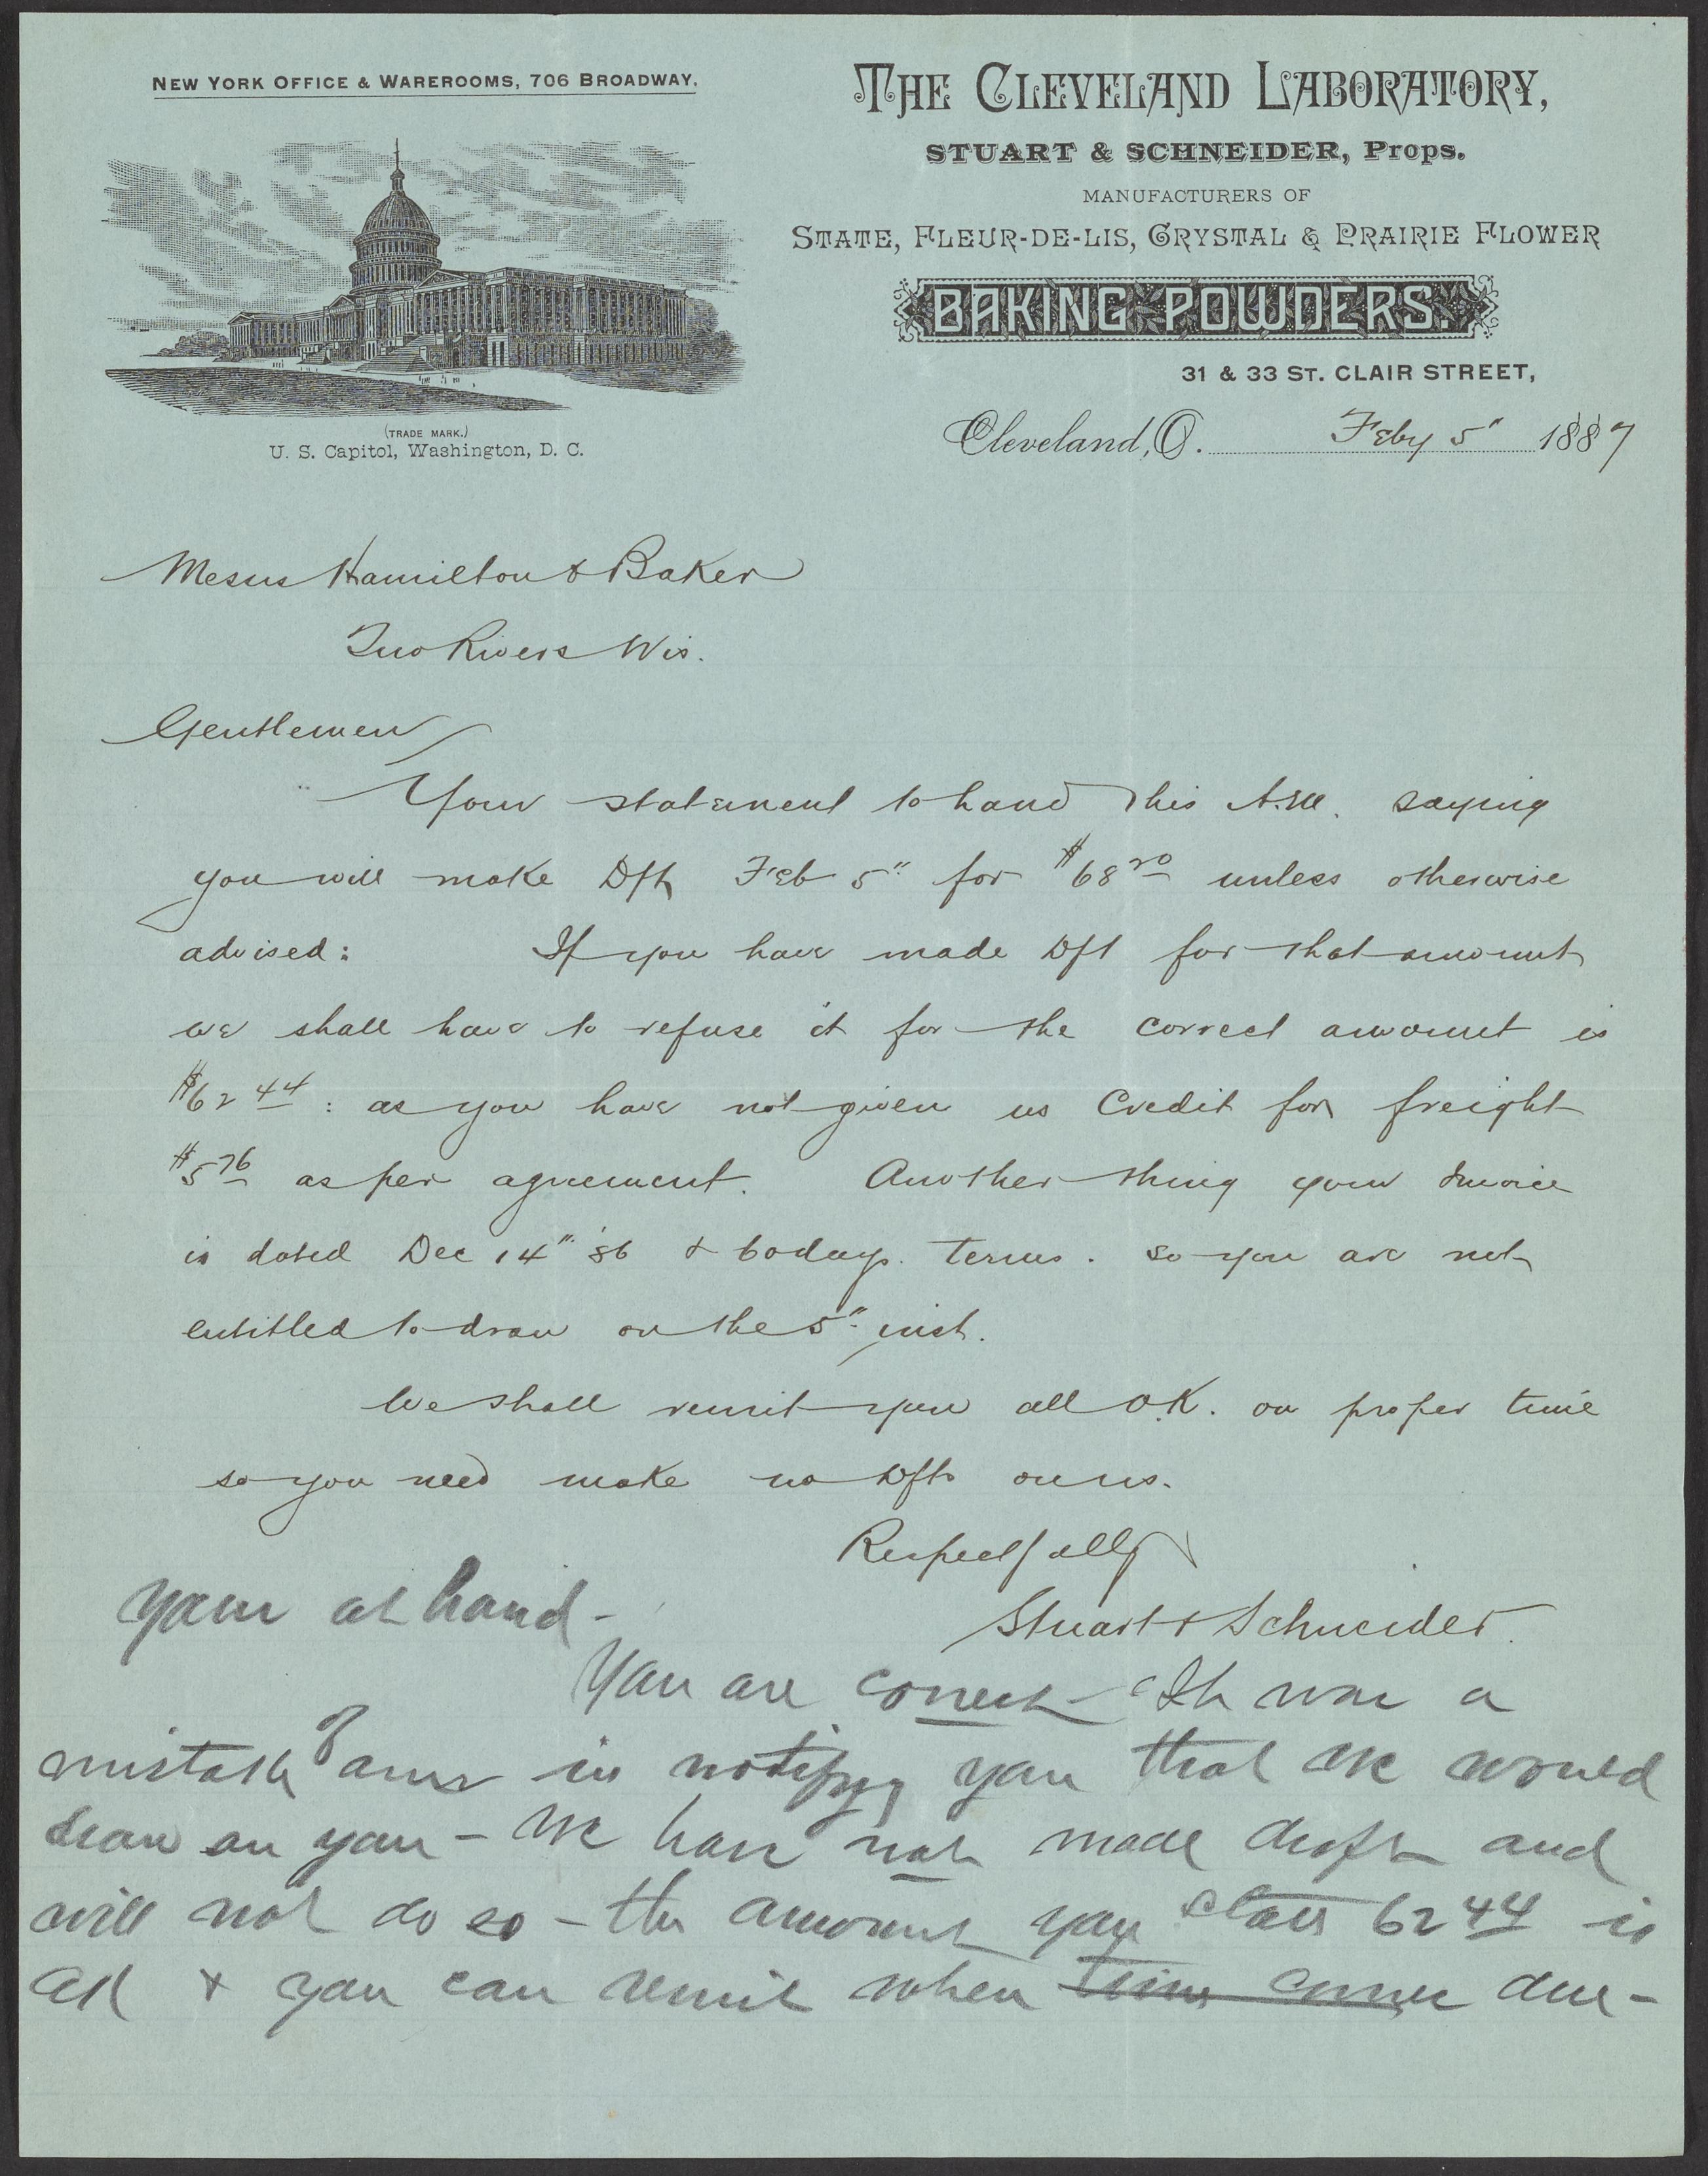 NEW YORK OFFICE & WAREROOMS, 706 BROADWAY.
(TRADE MARK.)
U. S. Capitol, Washington, D. C.
THE CLEVELAND LABORATORY,
STUART & SCHNEIDER, Props.
MANUFACTURERS OF
STATE, FLEUR-DE-LIS, CRYSTAL & PRAIRIE FLOWER
BAKING POWDERS.
31 & 33 ST. CLAIR STREET,
Cleveland, O. Feby 5" 1887
Messrs Hamilton & Baker
Two Rivers Wis.
Gentlemen
Your statement to hand this A.M. saying
you will make Dft Feb 5" for $68 20 unless otherwise
advised: If you have made Dft for that amount
we shall have to refuse it for the correct amount is
$62 44 : as you have not given us Credit for freight
$5 76 as per agreement. Another thing your Invoice
is dated Dec 14" '86 & 60 days. terms. so you are not
entitled to draw on the 5" inst.
We shall remit you all O.K. on proper time
so you need make no Dfts on us.
Respectfully
Stuart & Schneider.
Yours at hand -
You are correct - It was a
mistake of ours in notifyg you that we would
draw on you - We have not made draft and
will not do so - the amount you state 62 44 is
all & you can remit when time comes due -